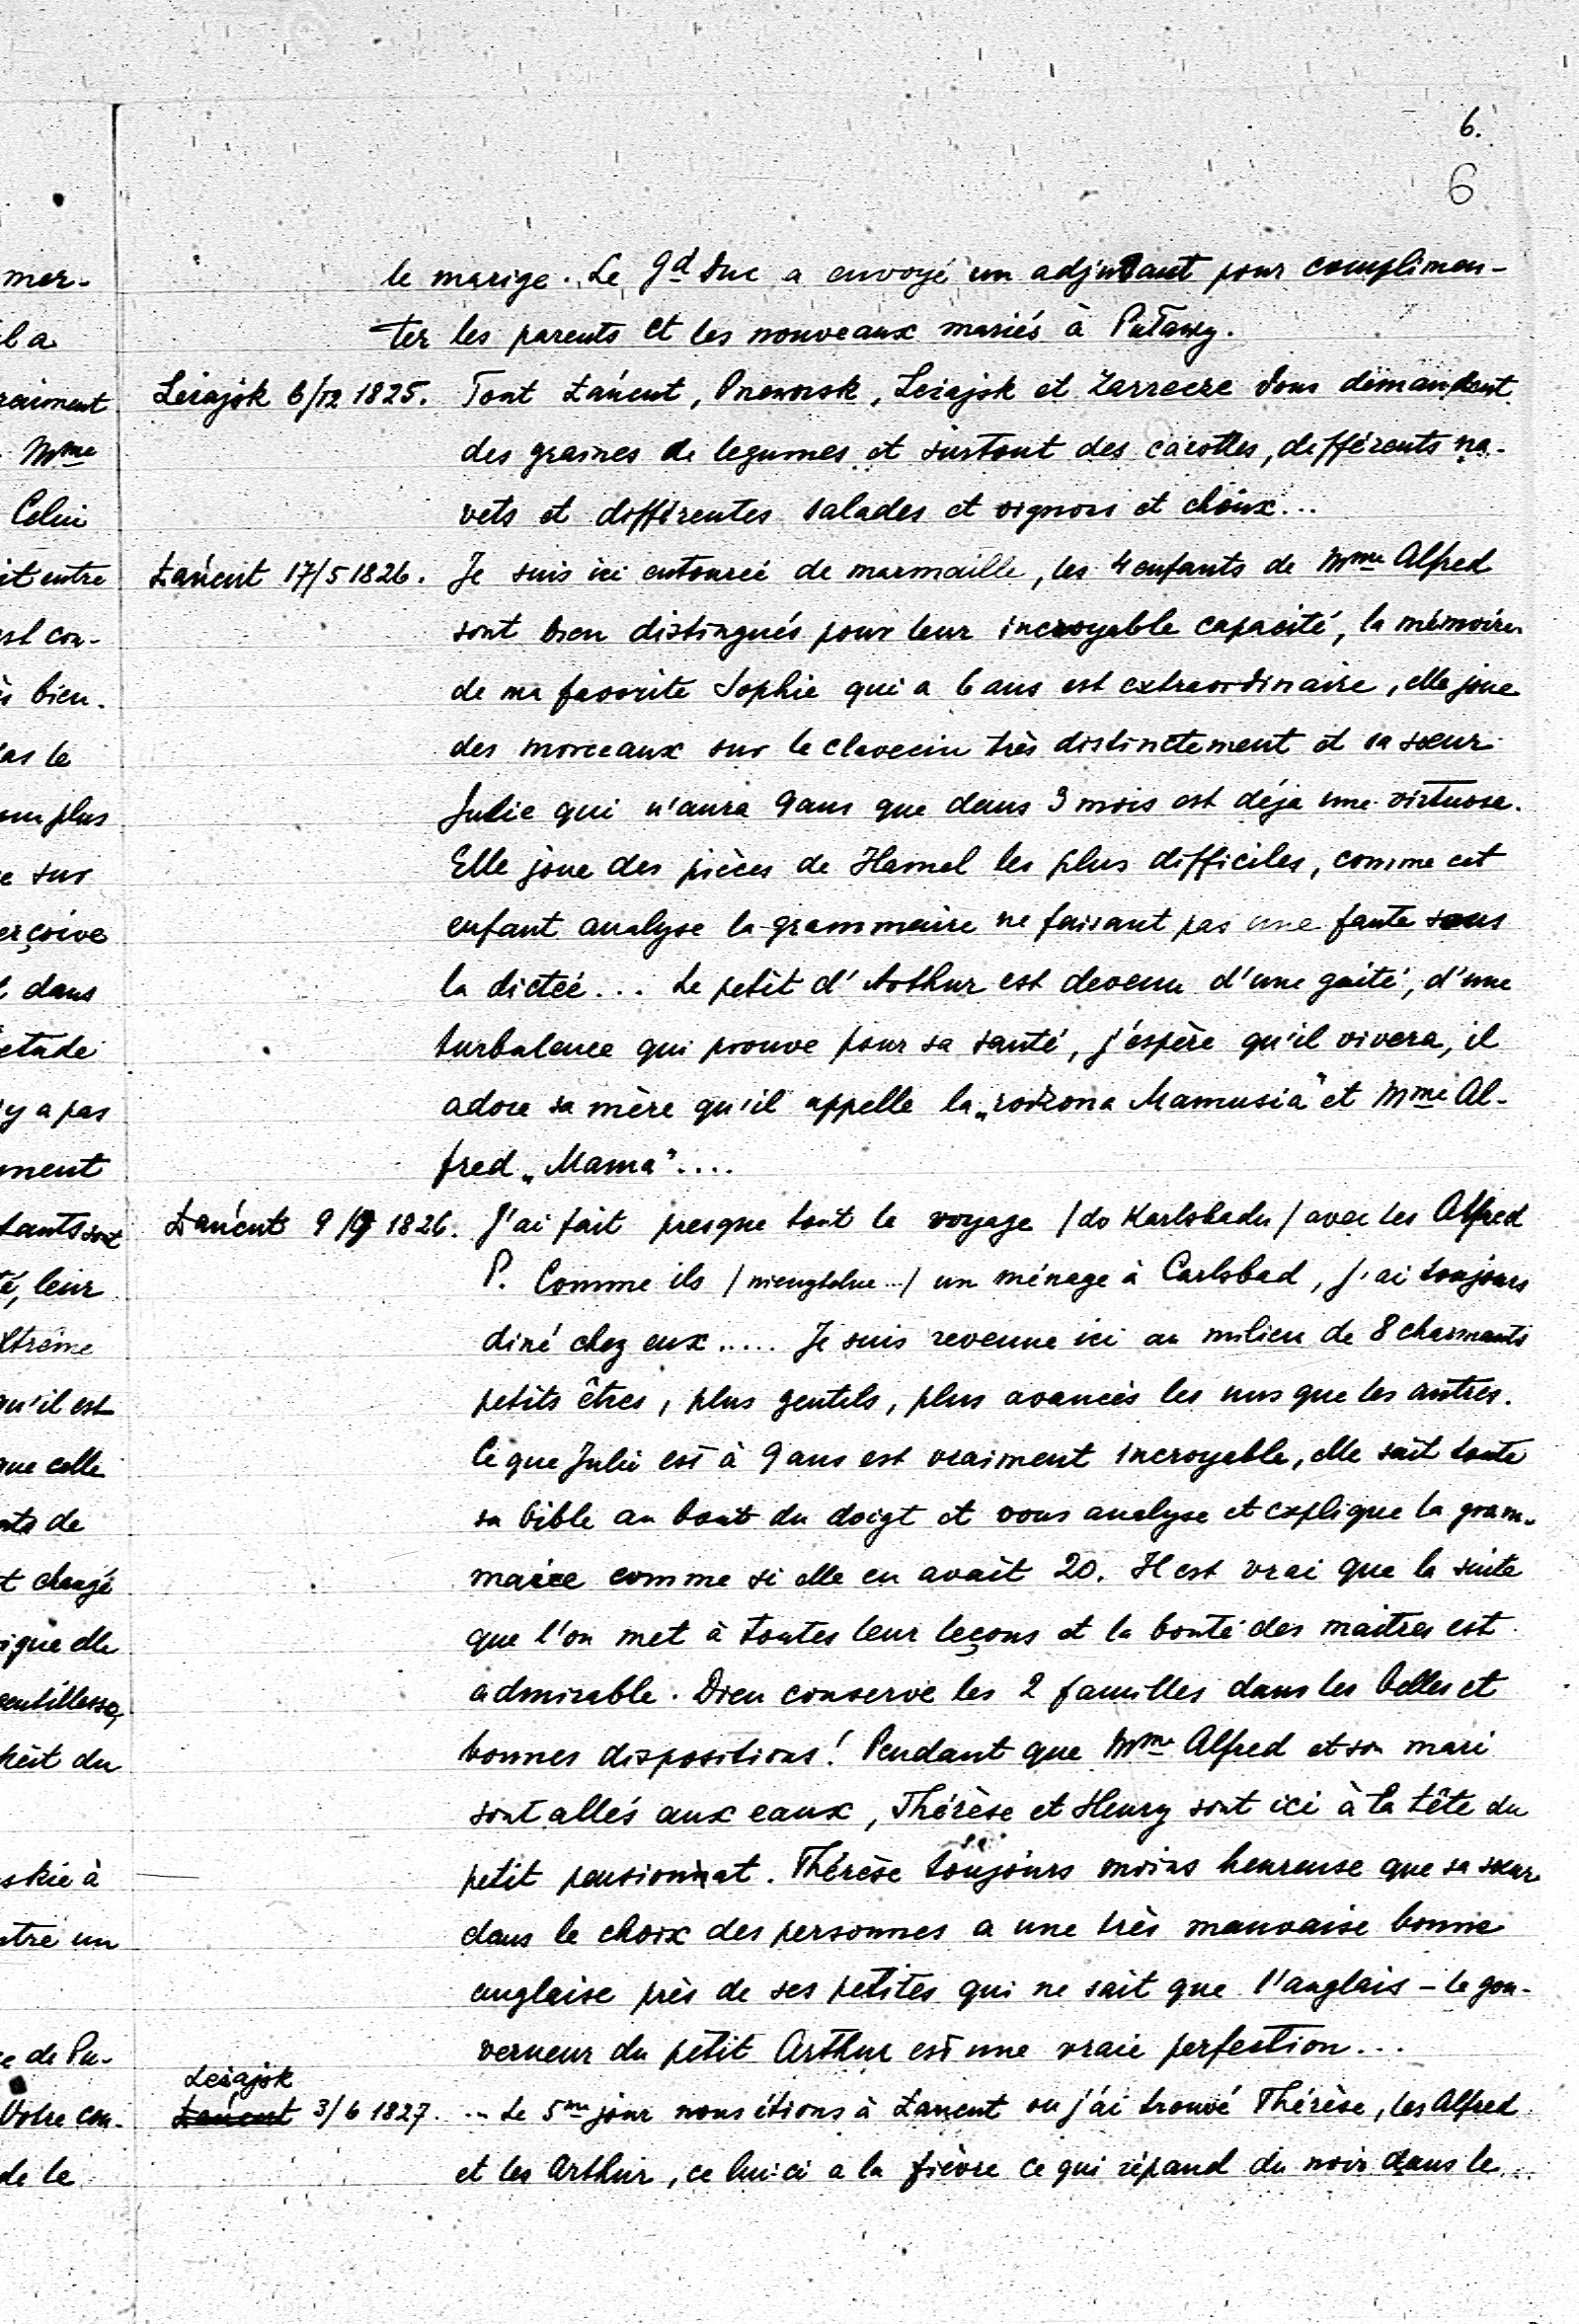 6.
6
le marige. Le Gd Duc a envoyé un adjudant pour complimen-
ter les parents et les nouveaux mariés à Puławy.
Leżajsk 6/12 1825. Tout Łańcut, Preworsk, Leżajsk et Zarzecze vous demandent
des graines de legumes et surtout des carottes, defférents na-
vets et différentes salades et oignons et choux...
Łańcut 17/5 1826. Je suis ici entourée de marmaille, les 4 enfants de Mme Alfred
sont bien distingués pour leur incroyable capacité, la mémoire
de ma favorite Sophie qui a 6 ans est extraordinaire, elle joue
des morceaux sur le clavecin très distinctement et sa sœur
Julie qui n'aura 9 ans que dans 3 mois est déja une virtuose.
Elle joue des pièces de Hamel les plus difficiles, comme cet
enfant analyse la grammaire ne faisant pas une faute sous
la dictée... Le petit d'Arthur est devenu d'une gaité, d'une
turbulence qui prouve pour sa santé, j'espère qu'il vivera, il
adore sa mère qu'il appelle la „rodzona Mamusia" et Mme Al-
fred „Mama"....
Łańcut 9/9 1826. J'ai fait presque tout le voyage /do Karlsbadu/ avec les Alfred
P. Comme ils /nieczytelne.../ un ménage à Carlsbad, j'ai toujours
diné chez eux..... Je suis revenue ici au milieu de 8 charmants
petits êtres, plus gentils, plus avancés les uns que les autres.
Ce que Julie est à 9 ans est vraiment incroyable, elle sait toute
sa bible au bout du doigt et vous analyse et explique la gram-
maire comme si elle en avait 20. Il est vrai que la suite
que l'on met à toutes leur leçons et la bonté des maitres est
admirable. Dieu conserve les 2 familles dans les belles et
bonnes dispositions! Pendant que Mme Alfred et son mari
sont allés aux eaux, Thérèse et Henry sont ici à la tête du
petit pensionnat. Thérèse toujours moins heureuse que sa sœur
dans le choix des personnes a une très mauvaise bonne
anglaise près de ses petites qui ne sait que l'anglais – le gou-
verneur du petit Arthur est une vraie perfection...
Leżajsk
Łańcut 3/6 1827. ... Le 5me jour nous étions à Łancut ou j'ai trouvé Thérèse, les Alfred
et les Arthur, ce lui-ci a la fièvre ce qui répand du noir dans le...